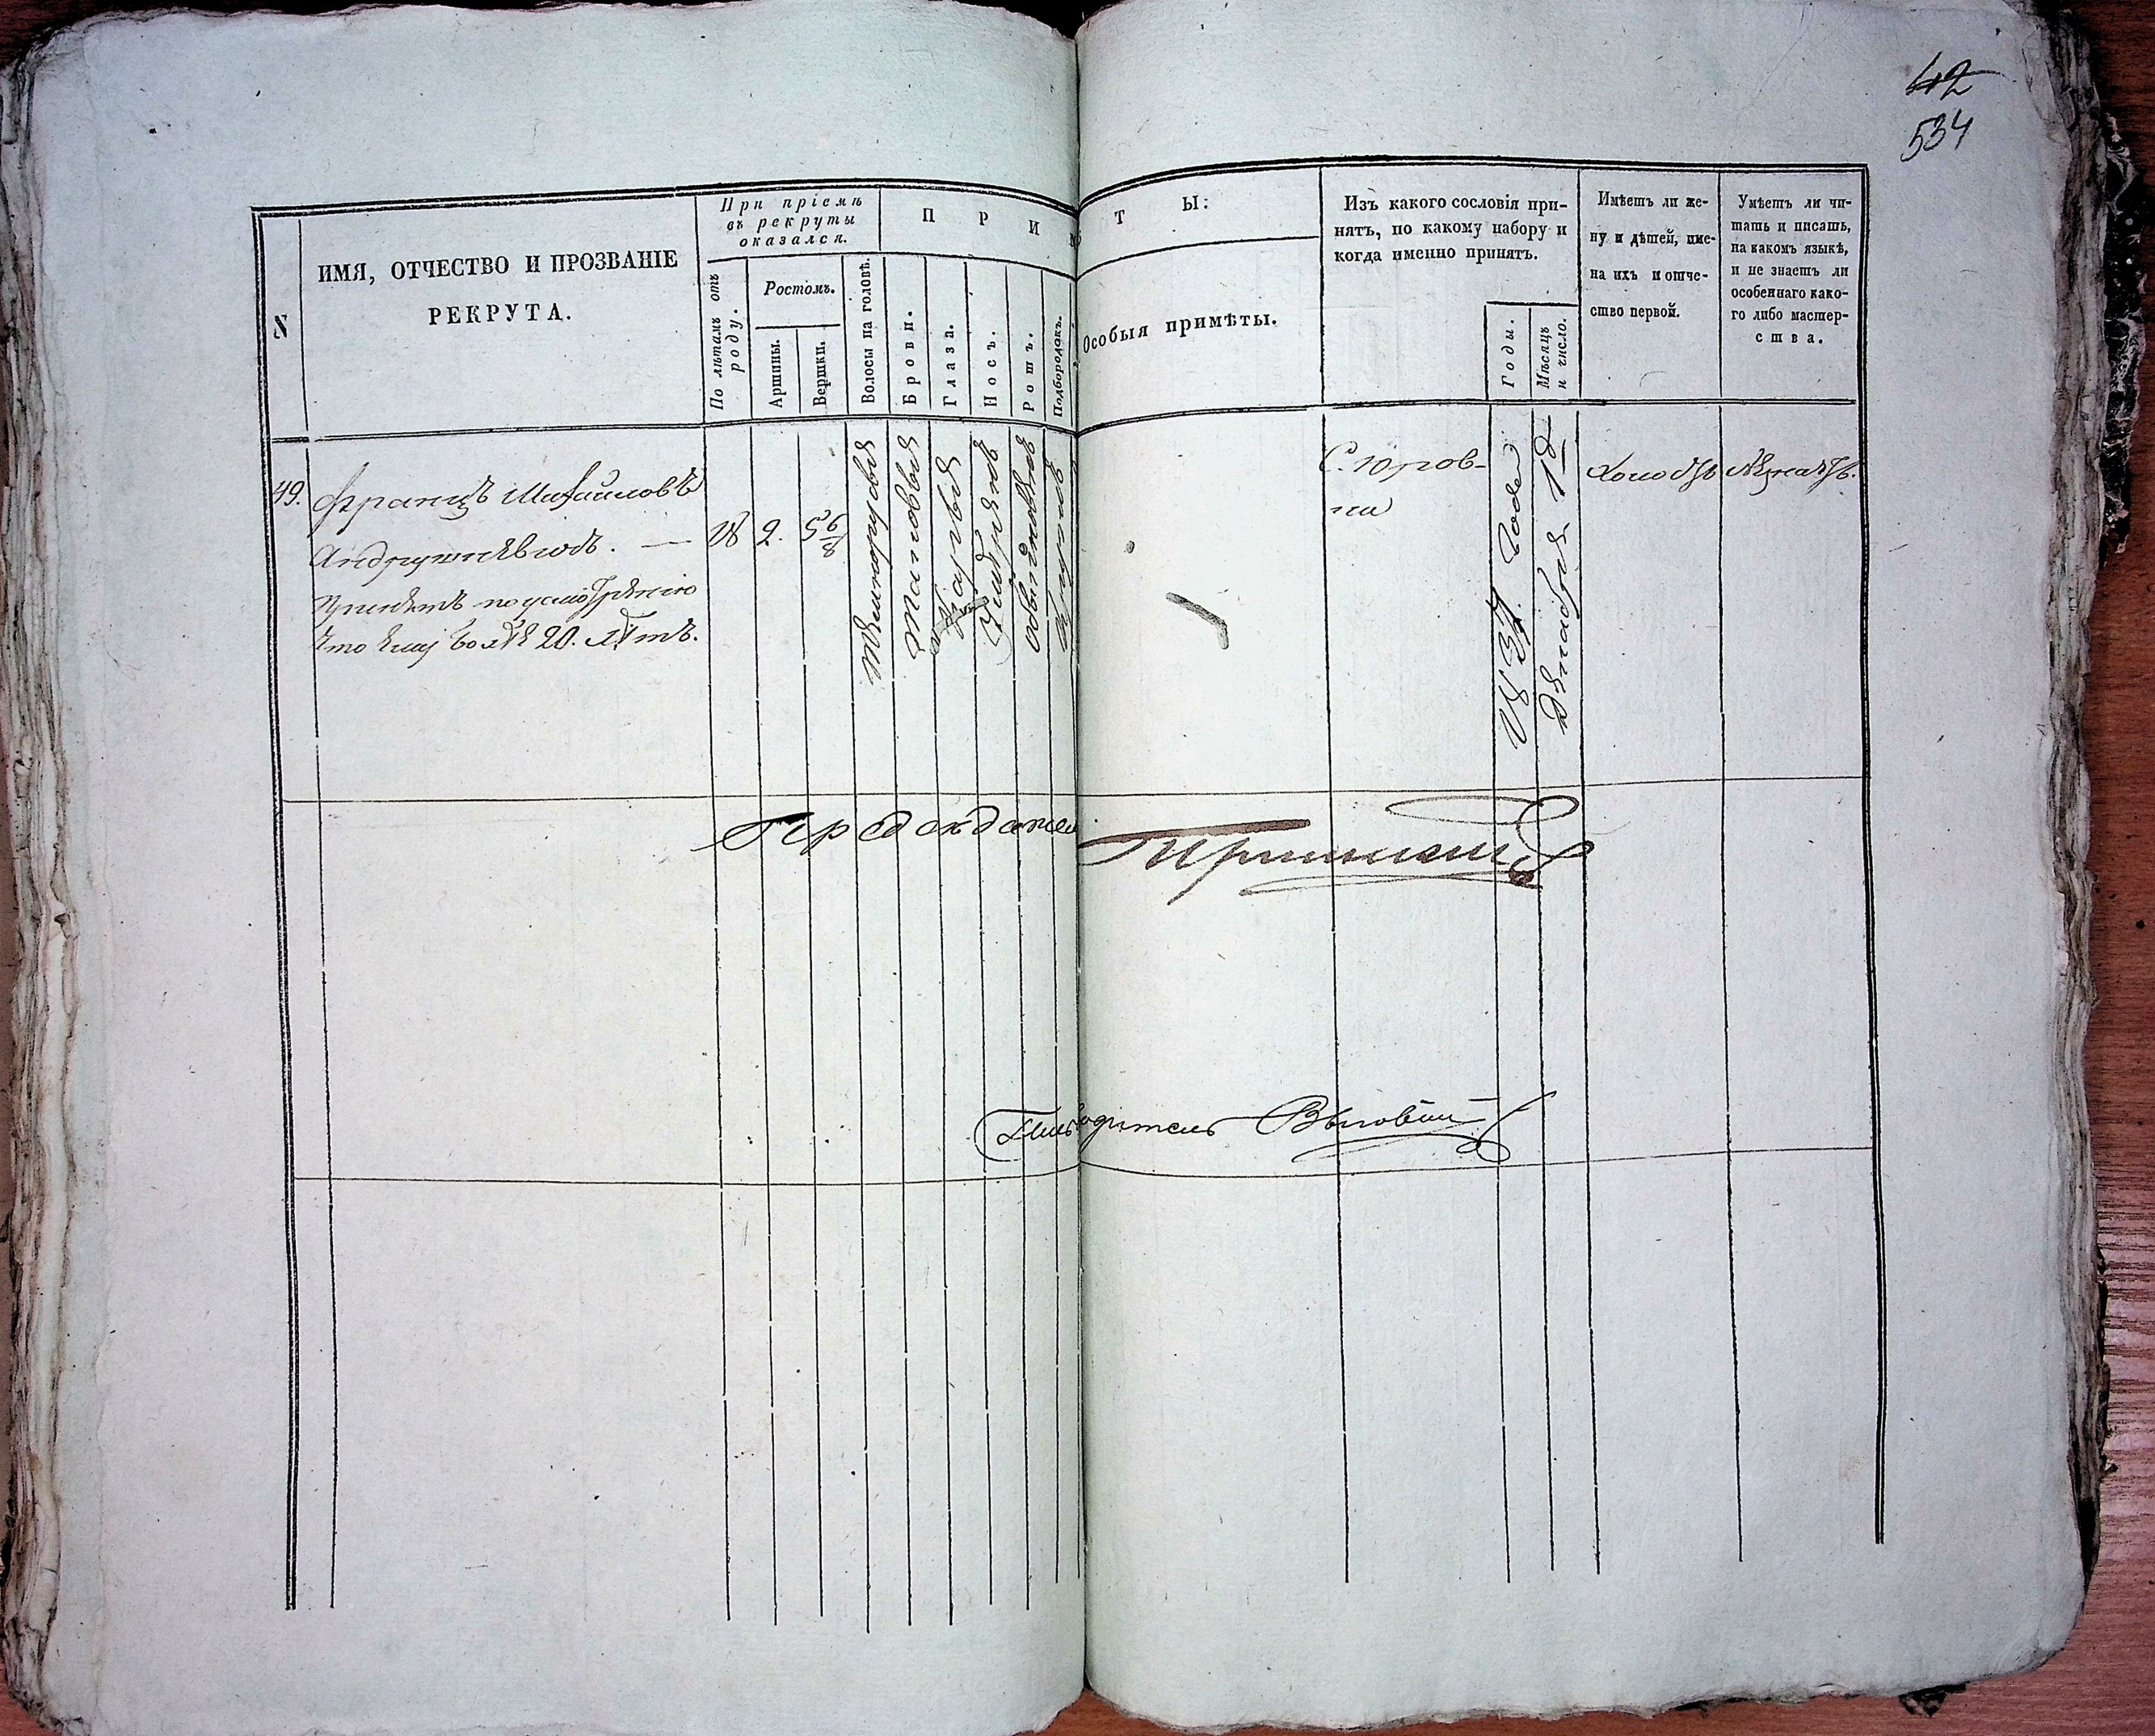 42
534
N
ИМЯ, ОТЧЕСТВО И ПРОЗВАНІЕ
РЕКРУТА.
При пріемѣ
въ рекруты
оказался.
По лѣтамъ отъ
роду.
Ростомъ.
Аршины.
Вершки.
П Р И М Ѣ Т Ы:
Волосы на головѣ.
Брови.
Глаза.
Носъ.
Ротъ.
Подбородокъ.
Особыя примѣты.
Изъ какого сословія при-
нятъ, по какому набору и
когда именно принятъ.
Годы.
Мѣсяцъ
и число.
Имѣетъ ли же-
ну и дѣтей, име-
на ихъ и отче-
ство первой.
Умѣетъ ли чи-
тать и писать,
на какомъ языкѣ,
и не знаетъ ли
особеннаго како-
го либо мастер-
ства.
49.
Францъ Михайловъ
Андрушкевичъ. —
Принятъ по усмотрѣнію
что ему болѣе 20. лѣтъ.
18
2.
5 6/8
темнорусыя
таковыя
карыя
умѣренъ
обыкновенъ
С. Юров-
ки
1837. Года
Декабря 1
Холостъ
Незнаетъ.
Гражданск